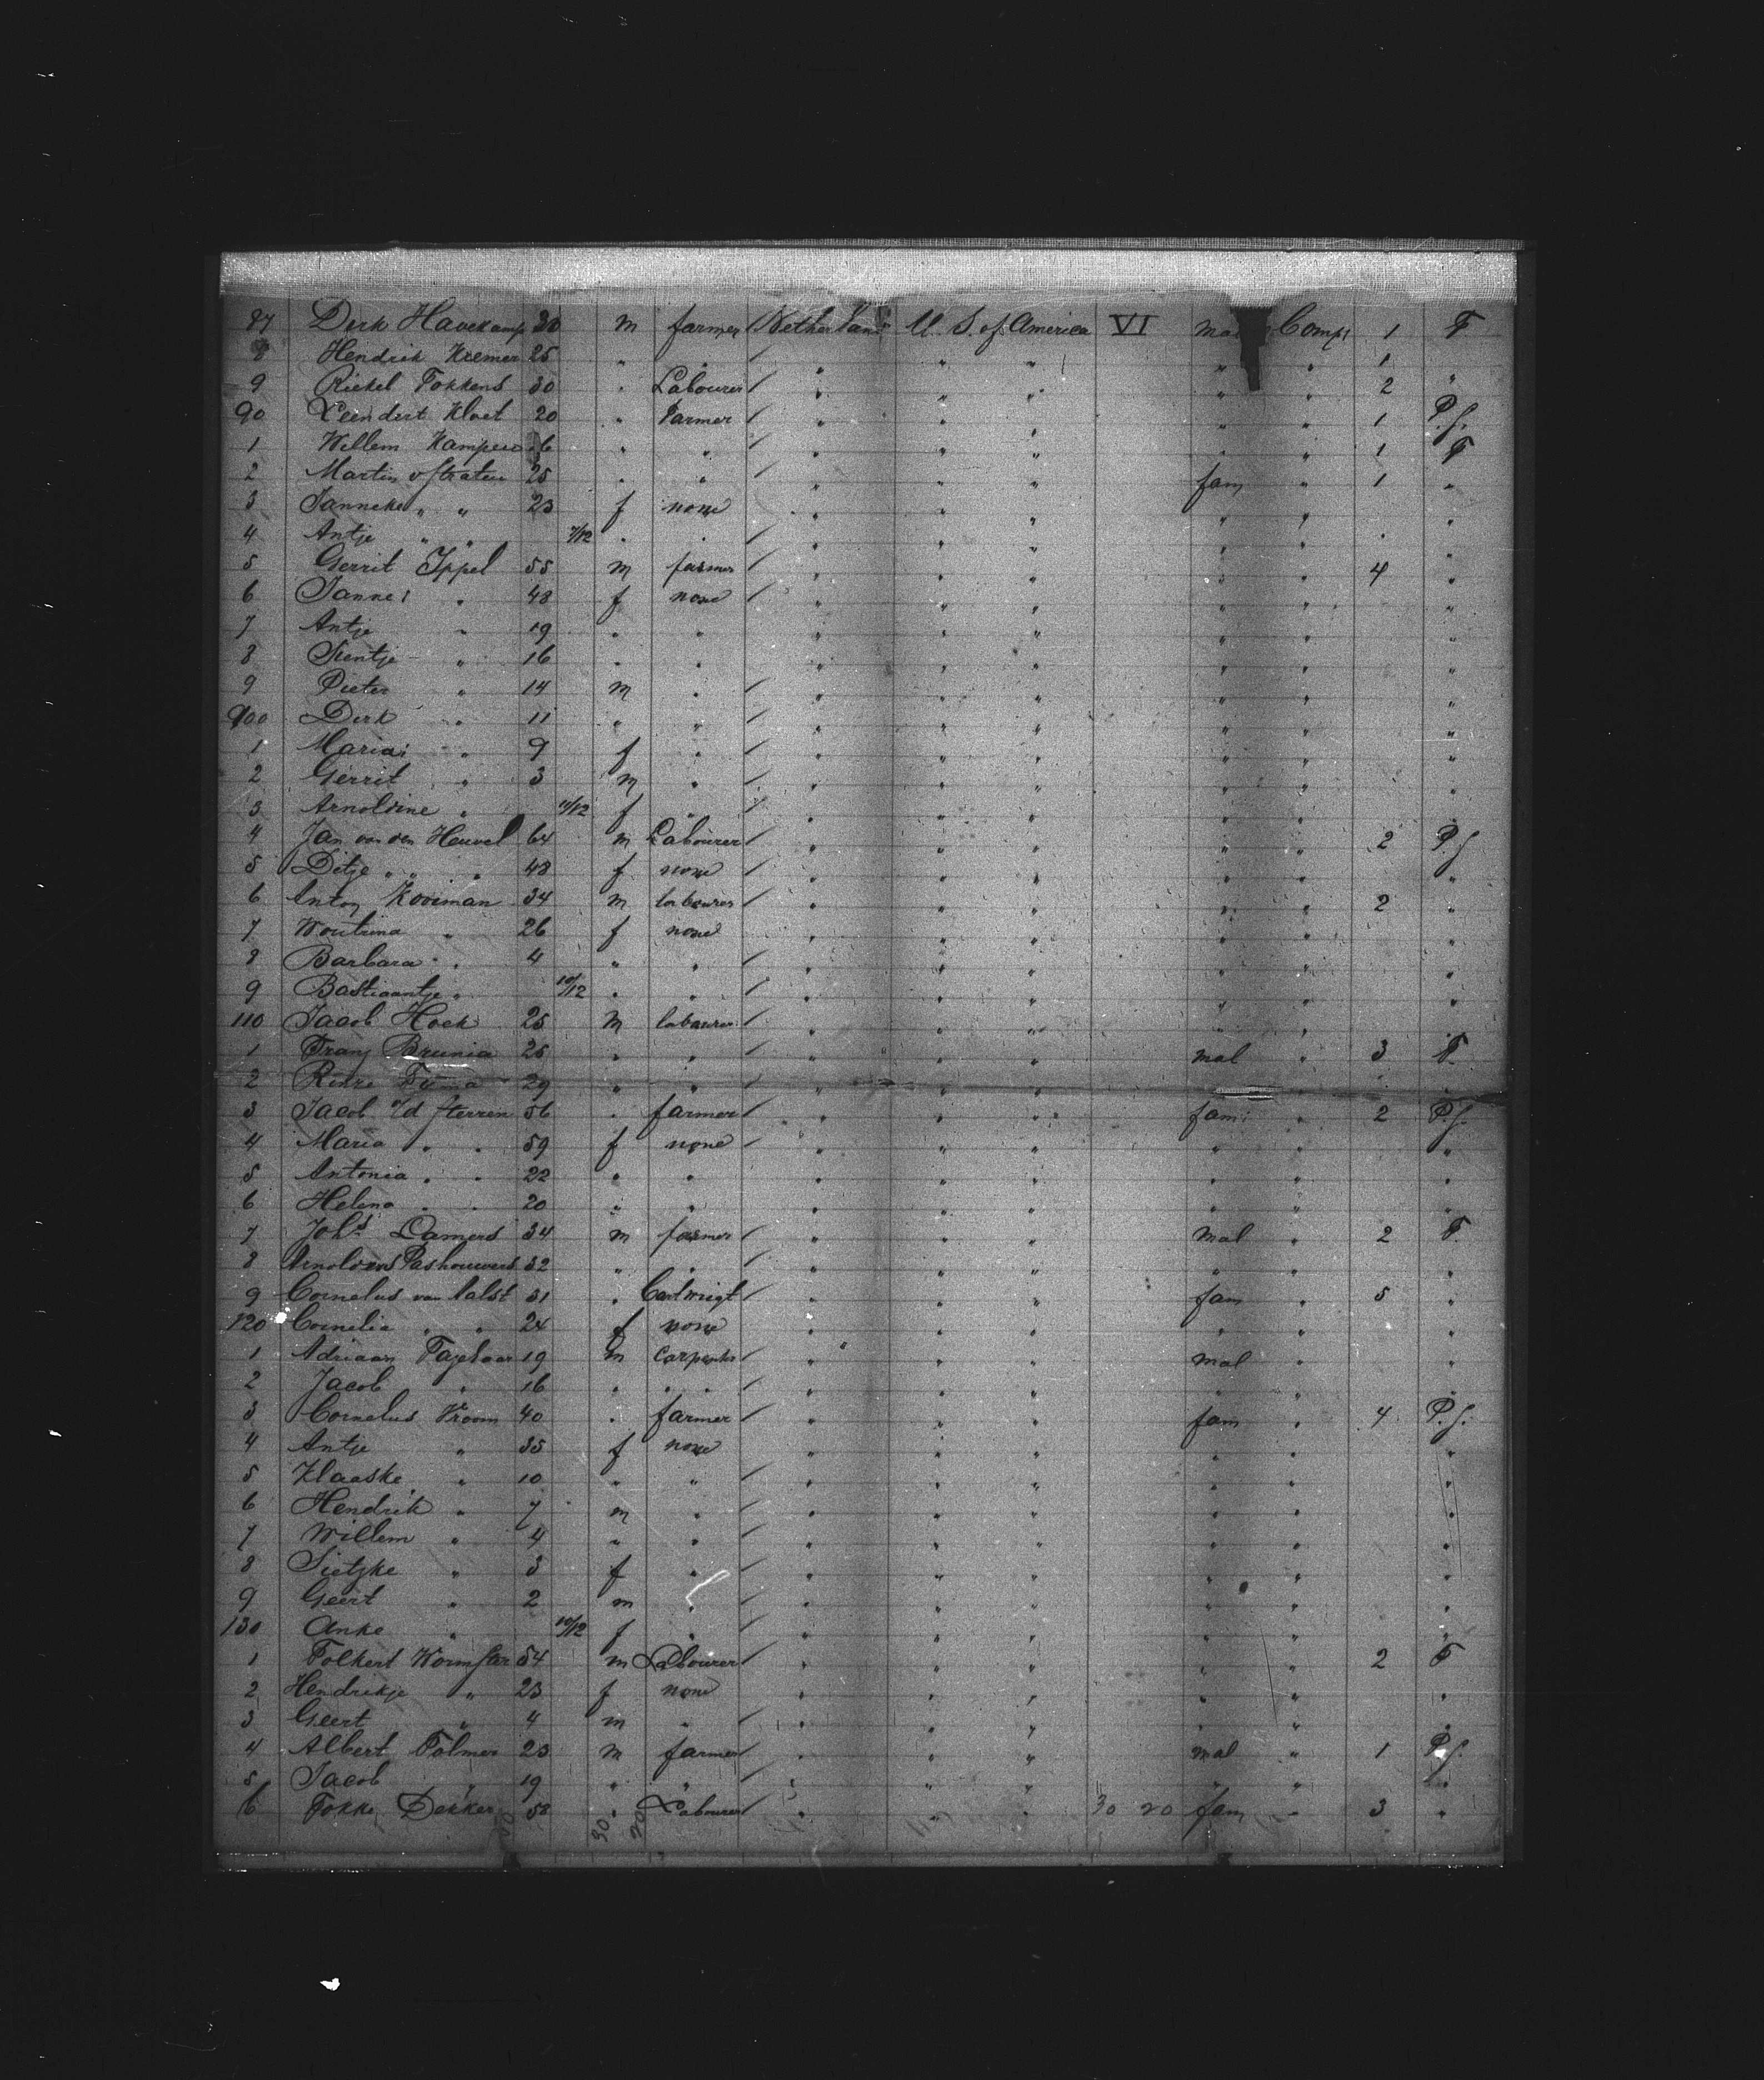 87 Dirk Havekamp 30 m farmer Netherland U. S. of America VI Compt 1 F
8 Hendrik Kremer 25 " " " " " " " 1
9 Riekel Fokkens 30 " Labourer " " " " " 2 "
90 Leendert Kloet 20 " Farmer " " " " " 1 P.S.
1 Willem " " " " " " " 1 F
2 Martin v Straten 25 " " " " " fam " 1 "
3 Janneke " " 23 f none " " " " " "
4 Antje " " 7/12 " " " " " " " " "
5 Gerrit Ippel 55 m farmer " " " " " 4 "
6 Janne " 48 f none " " " " " "
7 Antje " 19 " " " " " " " "
8 " 16 " " " " " " " "
9 Pieter " 14 m " " " " " " "
100 Dirk " 11 " " " " " " " "
1 Maria " 9 f " " " " " " "
2 Gerrit " 3 m " " " " " " "
3 Arnoldine " 10/12 f " " " " " " "
4 Jan van den Heuvel 64 m Labourer " " " " " 2 P.S
5 Ditje " " " 48 f none " " " " " "
6 Antoy Kooiman 34 m labourer " " " " " 2 "
7 Woutrina " 26 f none " " " " " "
8 Barbara " 4 " " " " " " " "
9 Bastiaantje " 10/12 " " " " " " " "
110 Jacob Hoek 25 m labourer " " " " "
1 Franz Brunia 25 " " " " " mal " 3 F
2 29 " " " " " " " "
3 Jacob v/d Sterren 56 " farmer " " " fam " 2 P.S.
4 Maria " " 59 f none " " " " " "
5 Antonia " " 22 " " " " " " " "
6 Helena " " 20 " " " " " " " "
7 Johs Damers 34 m farmer " " " mal " 2 F
8 Pashouwers 32 " " " " " " " "
9 Cornelus van Aalst 31 " Cartwrigt " " " fam " 5 "
120 Cornelia " " 24 f none " " " " " "
1 Adriaan Fagelaar 19 m Carpenter " " " mal " "
2 Jacob " 16 " " " " " " " "
3 Cornelus Vroom 40 " farmer " " " fam " 4 P.S.
4 Antje " 35 f none " " " " " "
5 Klaaske " 10 " " " " " " " "
6 Hendrik " 7 m " " " " " " "
7 Willem " 4 " " " " " " " "
8 Sietzke " 3 f " " " " " " "
9 Geert " 2 m " " " " " " "
130 Anke " 10/12 f " " " " " " "
1 Folkert 54 m Labourer " " " " " 2 F
2 Hendrikje " 23 f none " " " " " "
3 Geert " 4 m " " " " " " "
4 Albert Folmer 23 m farmer " " " mal " 1 P.S.
5 Jacob " 19 " " " " " " " "
6 Fokke Dekker 58 " Labourer " " " 30 20 fam " 3 "
30 20